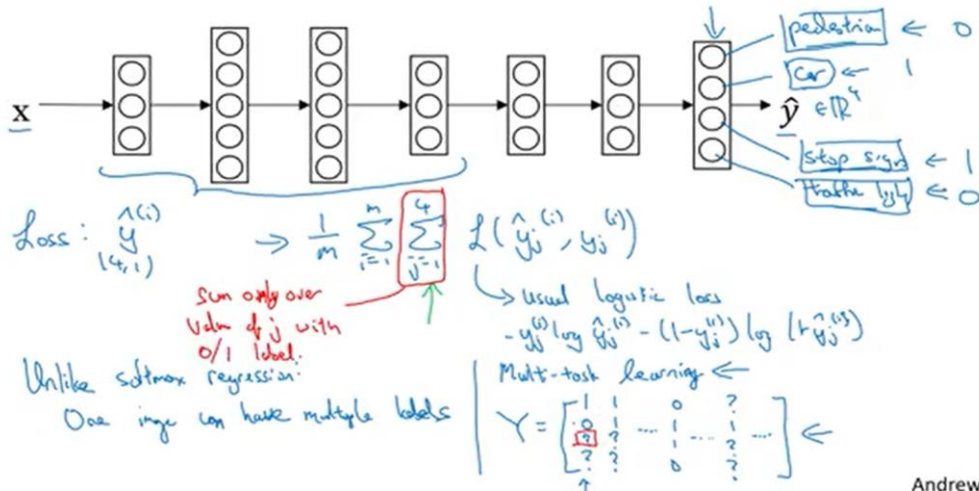 pedestrian ← 0
car ← 1
x
ŷ ∈ ℝ⁴
stop sign ← 1
traffic light ← 0
Loss: ŷ⁽ⁱ⁾ → 1/m ∑ᵢ₌₁ᵐ ∑ⱼ₌₁⁴ L(ŷⱼ⁽ⁱ⁾, yⱼ⁽ⁱ⁾)
(4,1)
sum only over
value of j with
0/1 label.
usual logistic loss
- yⱼ⁽ⁱ⁾ log ŷⱼ⁽ⁱ⁾ - (1-yⱼ⁽ⁱ⁾) log (1-ŷⱼ⁽ⁱ⁾)
Unlike softmax regression:
One image can have multiple labels
Multi-task learning ←
1 1 0 ?
Y = [ 0 ? ... 1 ... 1 ... ] ←
? ? 1 ?
? ? 0 ?
Andrew